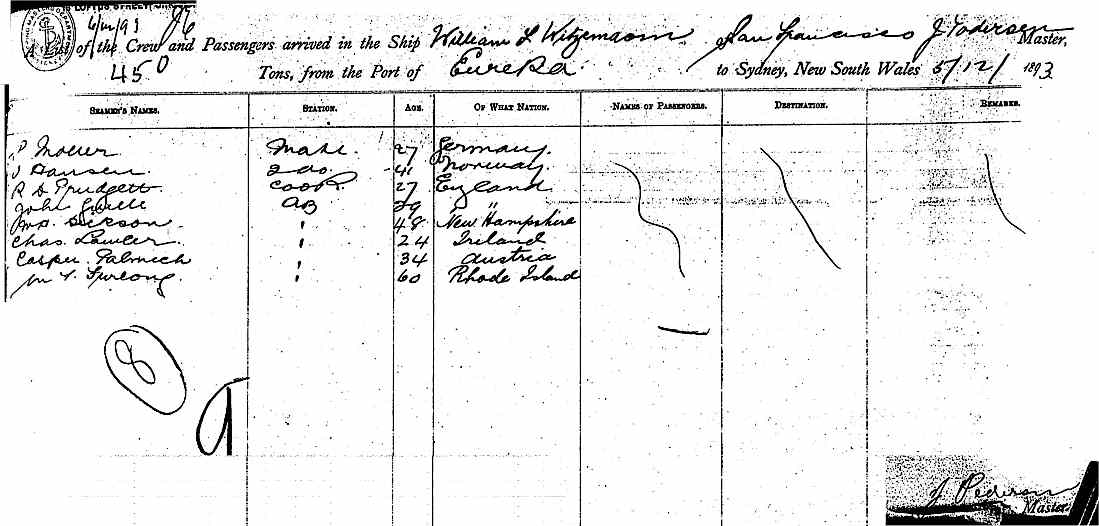 A List of the Crew and Passengers arrived in the Ship William L Witzemann San Francisco J Pedersen Master,
450 Tons, from the Port of Eureka to Sydney, New South Wales 5/12/1893
SEAMEN'S NAMES. STATION. AGE. OF WHAT NATION. NAMES OF PASSENGERS. DESTINATION. REMARKS.
Mate 27 Germany
J Hansen 2 do. 41 Norway
R D Prudgett Cook 27 England
John AB 39 "
" 48 New Hampshire
Chas. Lawler " 24 Ireland
Casper " 34 Austria
Furlong " 60 Rhode Island
8
9
J Pedersen
Master